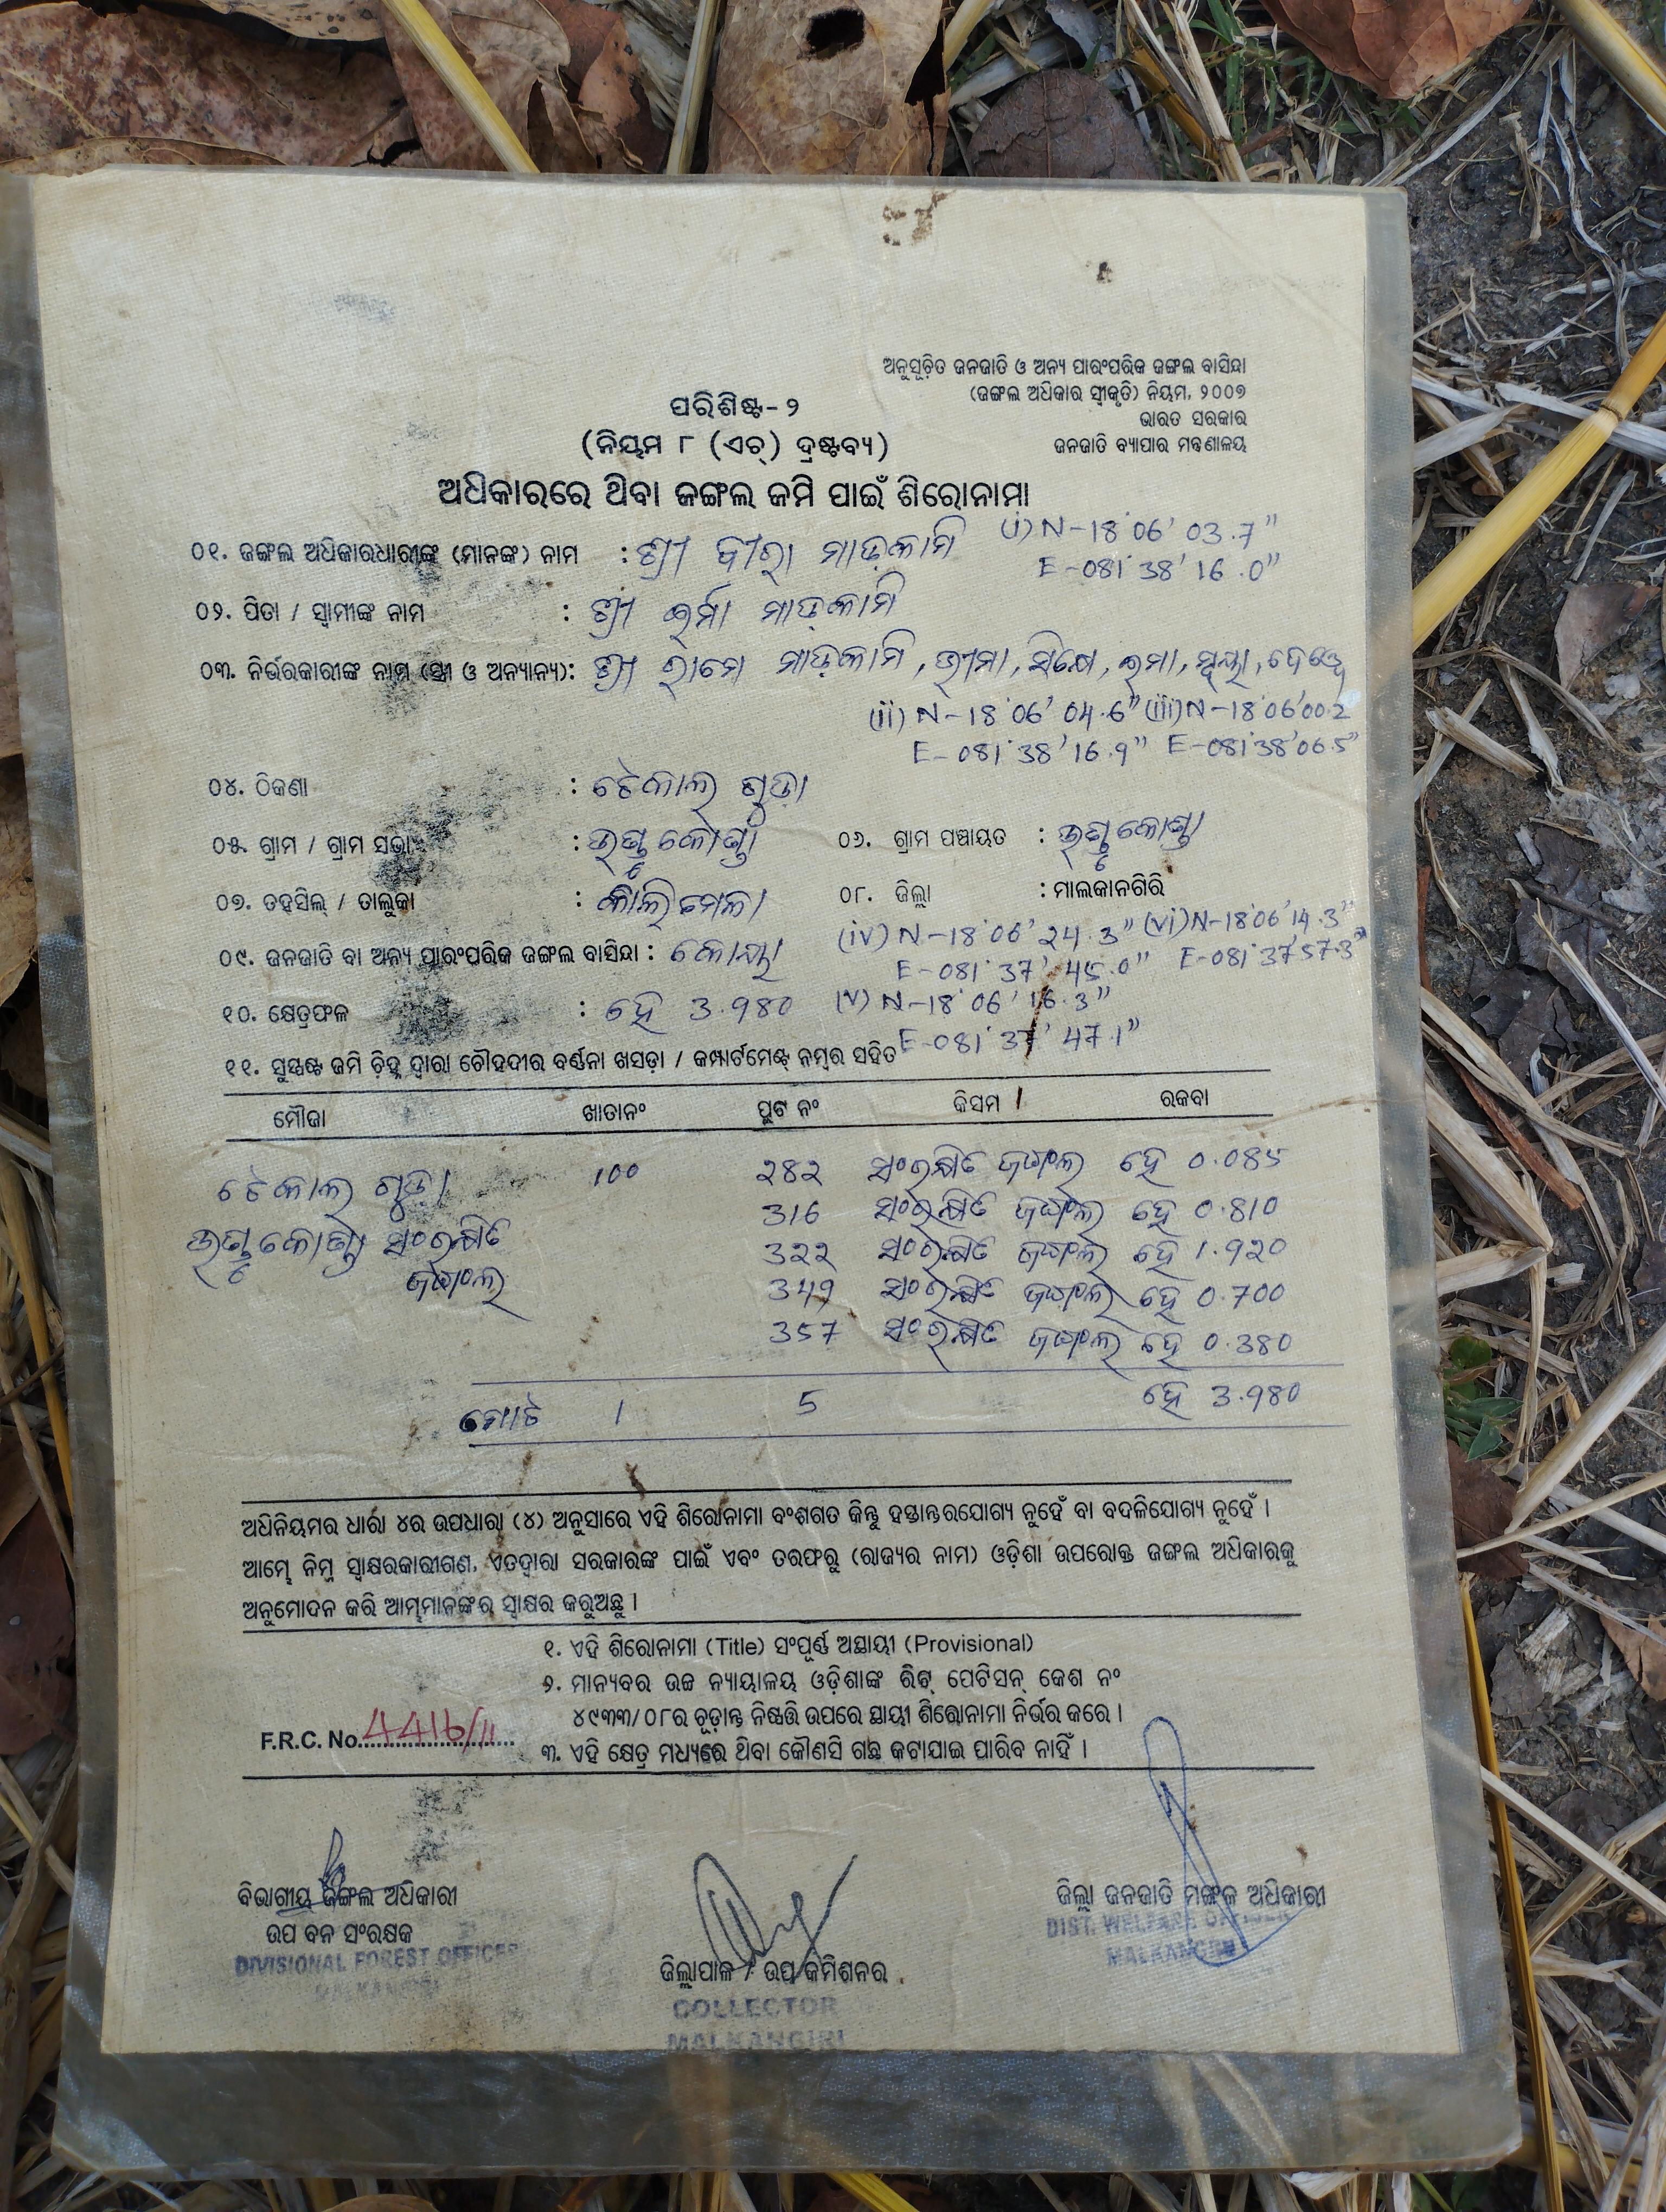 ଅନୁସୂଚିତ ଜନଜାତି ଓ ଅନ୍ୟ ପାରଂପରିକ ଜଙ୍ଗଲ ବାସିନ୍ଦା
(ଜଙ୍ଗଲ ଅଧିକାର ସ୍ୱୀକୃତି) ନିୟମ, ୨୦୦୭
ଭାରତ ସରକାର
ଜନଜାତି ବ୍ୟାପାର ମନ୍ତ୍ରଣାଳୟ
ପରିଶିଷ୍ଟ-୨
(ନିୟମ ୮ (ଏଚ୍) ଦ୍ରଷ୍ଟବ୍ୟ)
ଅଧିକାରରେ ଥିବା ଜଙ୍ଗଲ ଜମି ପାଇଁ ଶିରୋନାମା
୦୧. ଜଙ୍ଗଲ ଅଧିକାରଧାରୀଙ୍କ (ମାନଙ୍କ) ନାମ : ଶ୍ରୀ ବୀରା ମାଡ଼କାମି (i) N-18°06'03.7"
E-081°38'16.0"
୦୨. ପିତା / ସ୍ୱାମୀଙ୍କ ନାମ : ଶ୍ରୀ ଇର୍ମା ମାଡ଼କାମି
୦୩. ନିର୍ଭରକାରୀଙ୍କ ନାମ (ସ୍ତ୍ରୀ ଓ ଅନ୍ୟାନ୍ୟ): ଶ୍ରୀ ରାମେ ମାଡ଼କାମି, ଭୀମା, ଇମା,
(ii) N-18°06'04.6" (iii) N-18°06'00.2
E-081°38'16.9" E-081°38'06.5"
୦୪. ଠିକଣା : ଟେକାଲ ଗୁଡ଼ା
୦୫. ଗ୍ରାମ / ଗ୍ରାମ ସଭା : ଉଣ୍ଡୁକୋଣ୍ଡା ୦୬. ଗ୍ରାମ ପଞ୍ଚାୟତ : ଉଣ୍ଡୁକୋଣ୍ଡା
୦୭. ତହସିଲ୍ / ତାଲୁକା : କାଲିମେଳା ୦୮. ଜିଲ୍ଲା : ମାଲକାନଗିରି
(iv) N-18°06'24.3" (vi) N-18°06'14.3"
୦୯. ଜନଜାତି ବା ଅନ୍ୟ ପାରଂପରିକ ଜଙ୍ଗଲ ବାସିନ୍ଦା : କୋୟା E-081°37'45.0" E-081°37'57.3"
୧୦. କ୍ଷେତ୍ରଫଳ : ହେ 3.980 (v) N-18°06'16.3"
E-081°37'47.1"
୧୧. ସୁସ୍ପଷ୍ଟ ଜମି ଚିହ୍ନ ଦ୍ୱାରା ଚୌହଦୀର ବର୍ଣ୍ଣନା ଖସଡ଼ା / କମ୍ପାର୍ଟମେଣ୍ଟ୍ ନମ୍ବର ସହିତ
ମୌଜା ଖାତାନଂ ପ୍ଲଟ ନଂ କିସମ ରକବା
ଟେକାଲ ଗୁଡ଼ା 100 282 ସଂରକ୍ଷିତ ଜଙ୍ଗଲ ହେ 0.085
316 ସଂରକ୍ଷିତ ଜଙ୍ଗଲ ହେ 0.810
ଉଣ୍ଡୁକୋଣ୍ଡା ସଂରକ୍ଷିତ 322 ସଂରକ୍ଷିତ ଜଙ୍ଗଲ ହେ 1.920
ଜଙ୍ଗଲ 349 ସଂରକ୍ଷିତ ଜଙ୍ଗଲ ହେ 0.700
357 ସଂରକ୍ଷିତ ଜଙ୍ଗଲ ହେ 0.380
ମୋଟ 1 5 ହେ 3.980
ଅଧିନିୟମର ଧାରା ୪ର ଉପଧାରା (୪) ଅନୁସାରେ ଏହି ଶିରୋନାମା ବଂଶଗତ କିନ୍ତୁ ହସ୍ତାନ୍ତରଯୋଗ୍ୟ ନୁହେଁ ବା ବଦଳିଯୋଗ୍ୟ ନୁହେଁ ।
ଆମ୍ଭେ ନିମ୍ନ ସ୍ୱାକ୍ଷରକାରୀଗଣ, ଏତଦ୍ଦ୍ୱାରା ସରକାରଙ୍କ ପାଇଁ ଏବଂ ତରଫରୁ (ରାଜ୍ୟର ନାମ) ଓଡ଼ିଶା ଉପରୋକ୍ତ ଜଙ୍ଗଲ ଅଧିକାରକୁ
ଅନୁମୋଦନ କରି ଆମ୍ଭମାନଙ୍କର ସ୍ୱାକ୍ଷର କରୁଅଛୁ ।
୧. ଏହି ଶିରୋନାମା (Title) ସଂପୂର୍ଣ୍ଣ ଅସ୍ଥାୟୀ (Provisional)
୨. ମାନ୍ୟବର ଉଚ୍ଚ ନ୍ୟାୟାଳୟ ଓଡ଼ିଶାଙ୍କ ରିଟ୍ ପେଟିସନ୍ କେଶ ନଂ
୪୯୩୩/୦୮ର ଚୂଡ଼ାନ୍ତ ନିଷ୍ପତ୍ତି ଉପରେ ସ୍ଥାୟୀ ଶିରୋନାମା ନିର୍ଭର କରେ ।
F.R.C. No. 4416/11
୩. ଏହି କ୍ଷେତ୍ର ମଧ୍ୟରେ ଥିବା କୌଣସି ଗଛ କଟାଯାଇ ପାରିବ ନାହିଁ ।
ବିଭାଗୀୟ ଜଙ୍ଗଲ ଅଧିକାରୀ
ଉପ ବନ ସଂରକ୍ଷକ
DIVISIONAL FOREST OFFICER
MALKANGIRI
ଜିଲ୍ଲାପାଳ / ଉପ କମିଶନର
COLLECTOR
MALKANGIRI
ଜିଲ୍ଲା ଜନଜାତି ମଙ୍ଗଳ ଅଧିକାରୀ
DIST. WELFARE OFFICER
MALKANGIRI